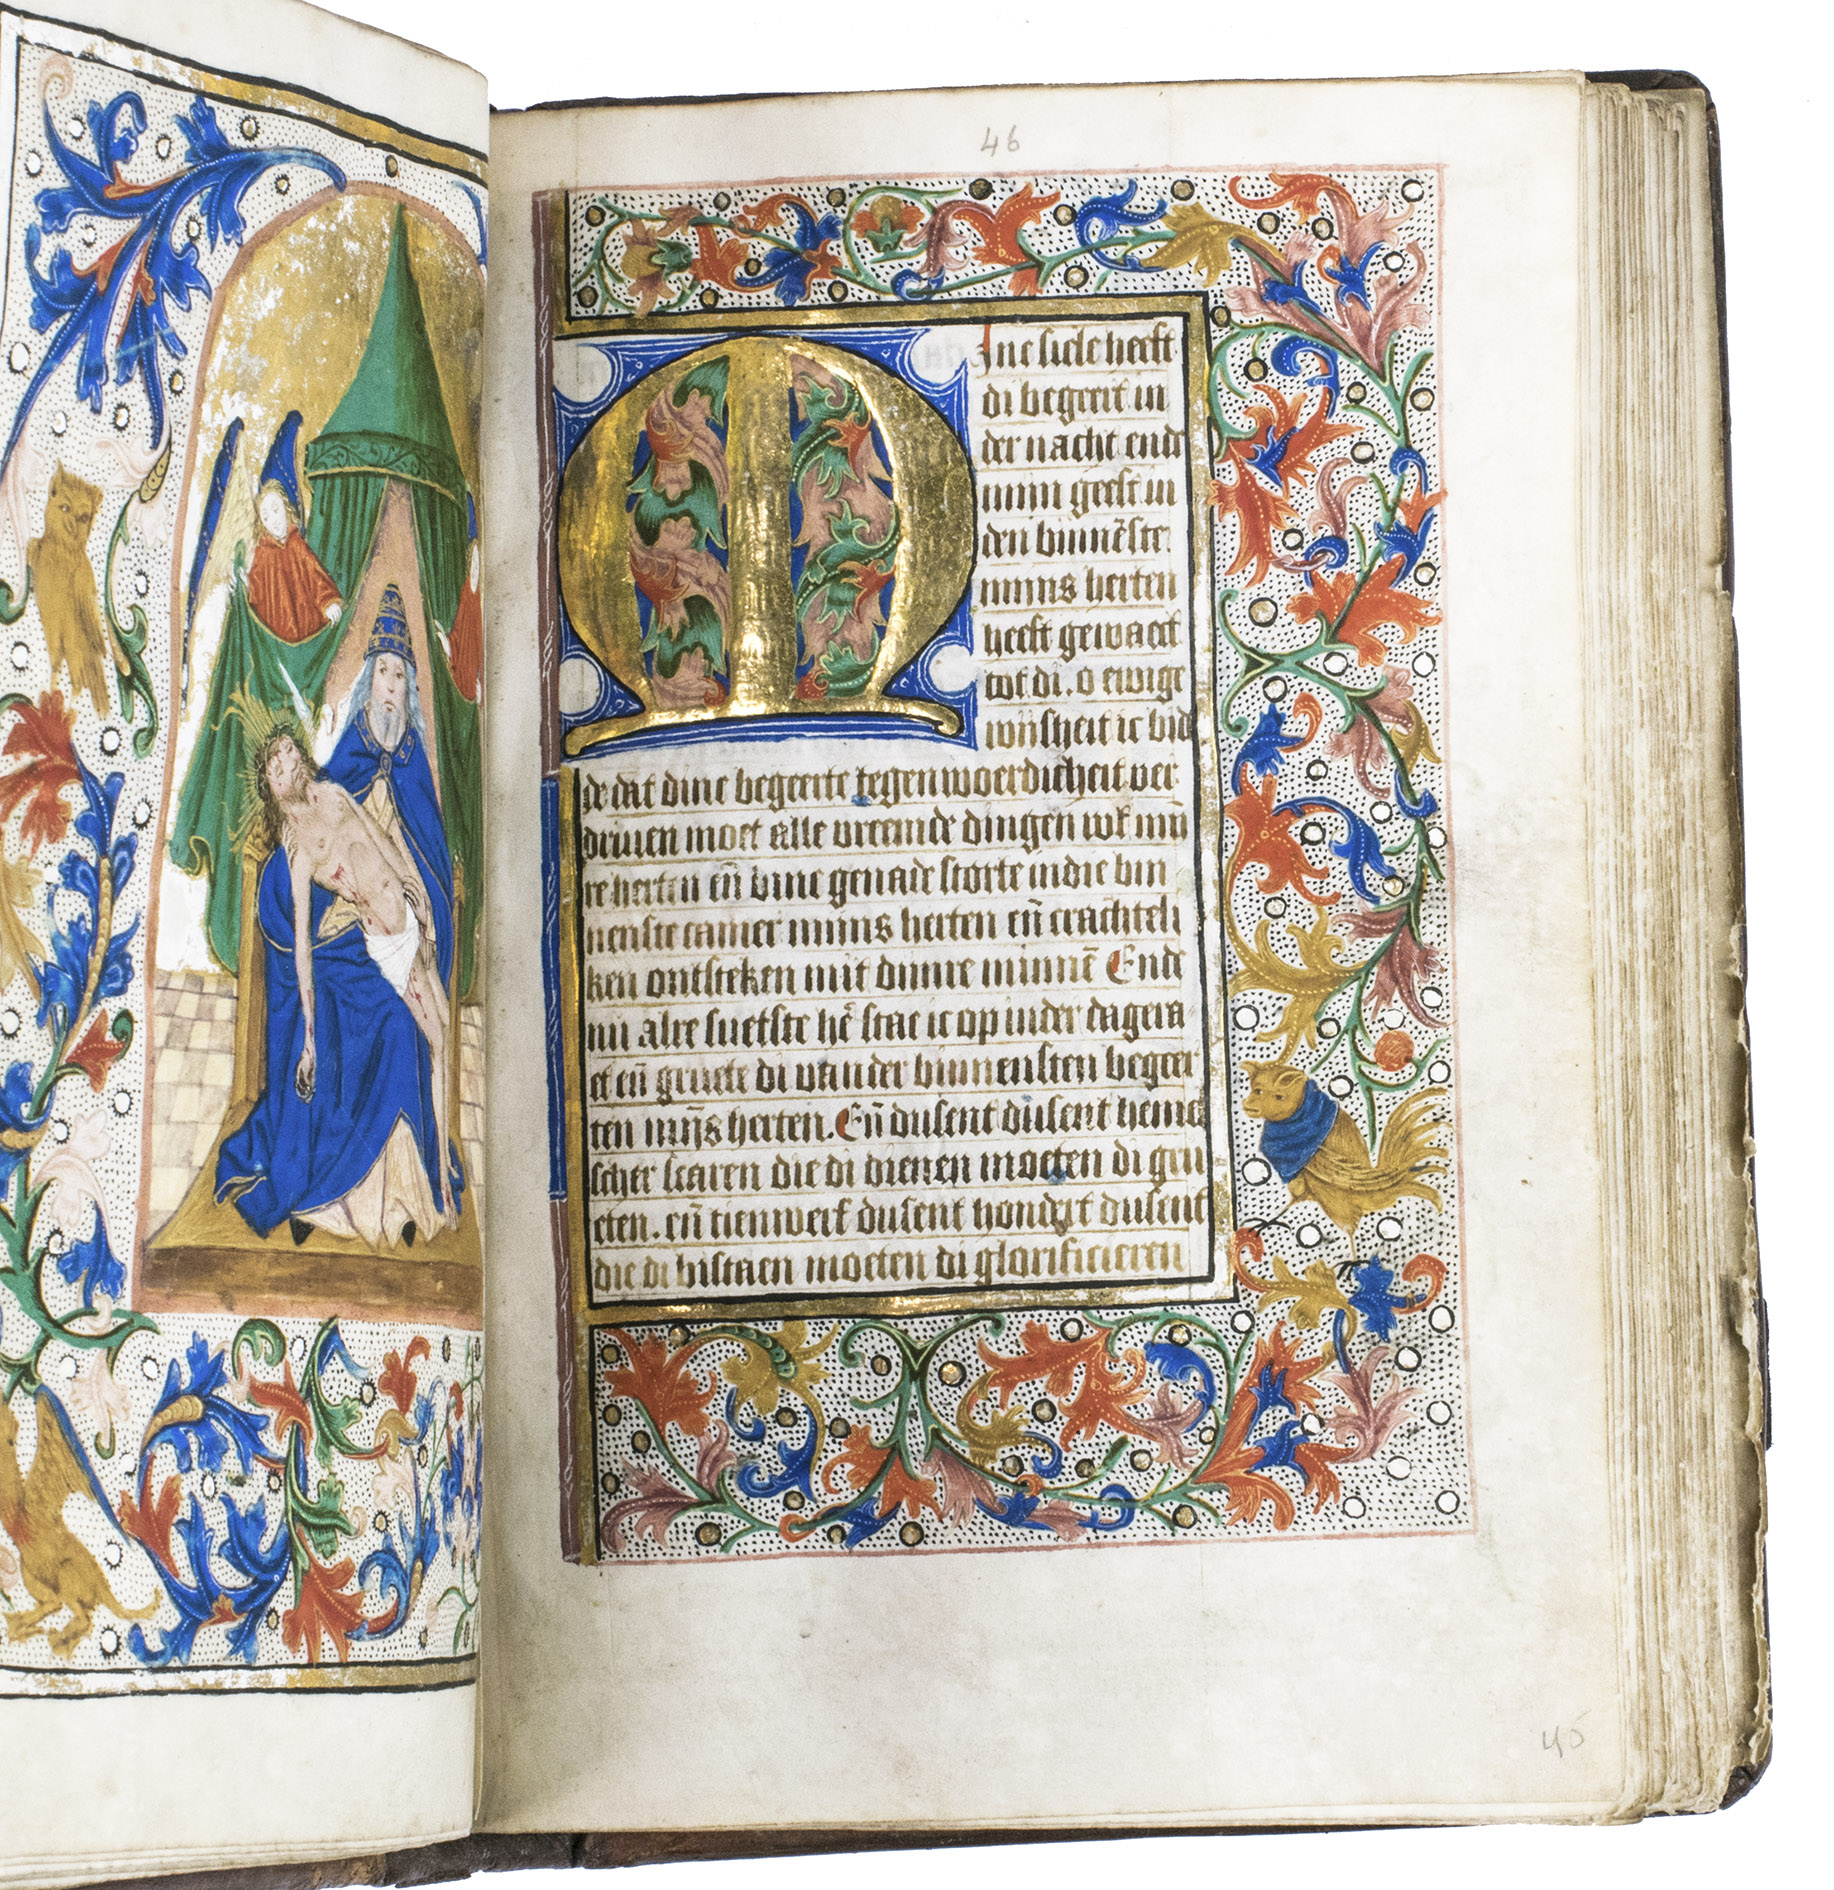 46
M
ine siele heeft
di begeert in
der nacht ende
mijn geest in
den binnēste
mijns herten
heeft gewaect
tot di. o ewige
wijsheit ic bid
de dat dine begeerte tegenwoerdicheit ver
driuen moet alle vreemde dingen wt mij
re herten eñ dine genade storte in die bin
nenste camer mijns herten eñ crachteli
ken ontsteken mit dijnre minnē Ende
nu alre suetste hē stae ic op in der dagera
et eñ gruete di vander binnensten begeer
ten mijns herten. Eñ dusent dusent hemel
scher scaren die di dienen moeten di gru
eten. eñ tienwerf dusent hondert dusent
die di bistaen moeten di glorificieren
45